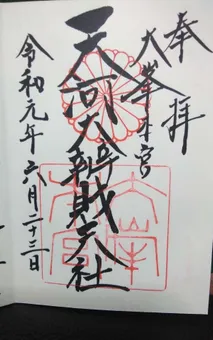 奉拝
大峯本宮
天河大辨財天社
令和元年六月二十三日